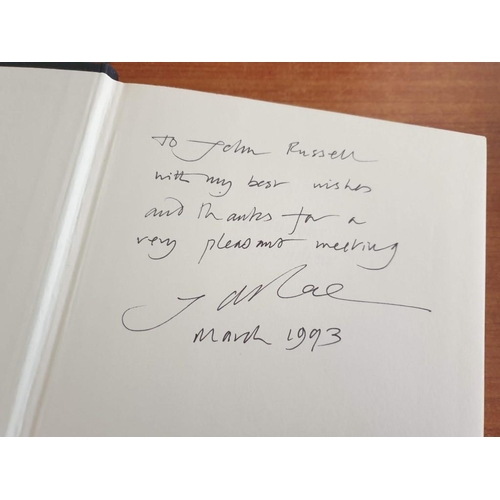 To John Russell
with my best wishes
and thanks for a
very pleasant meeting
March 1993